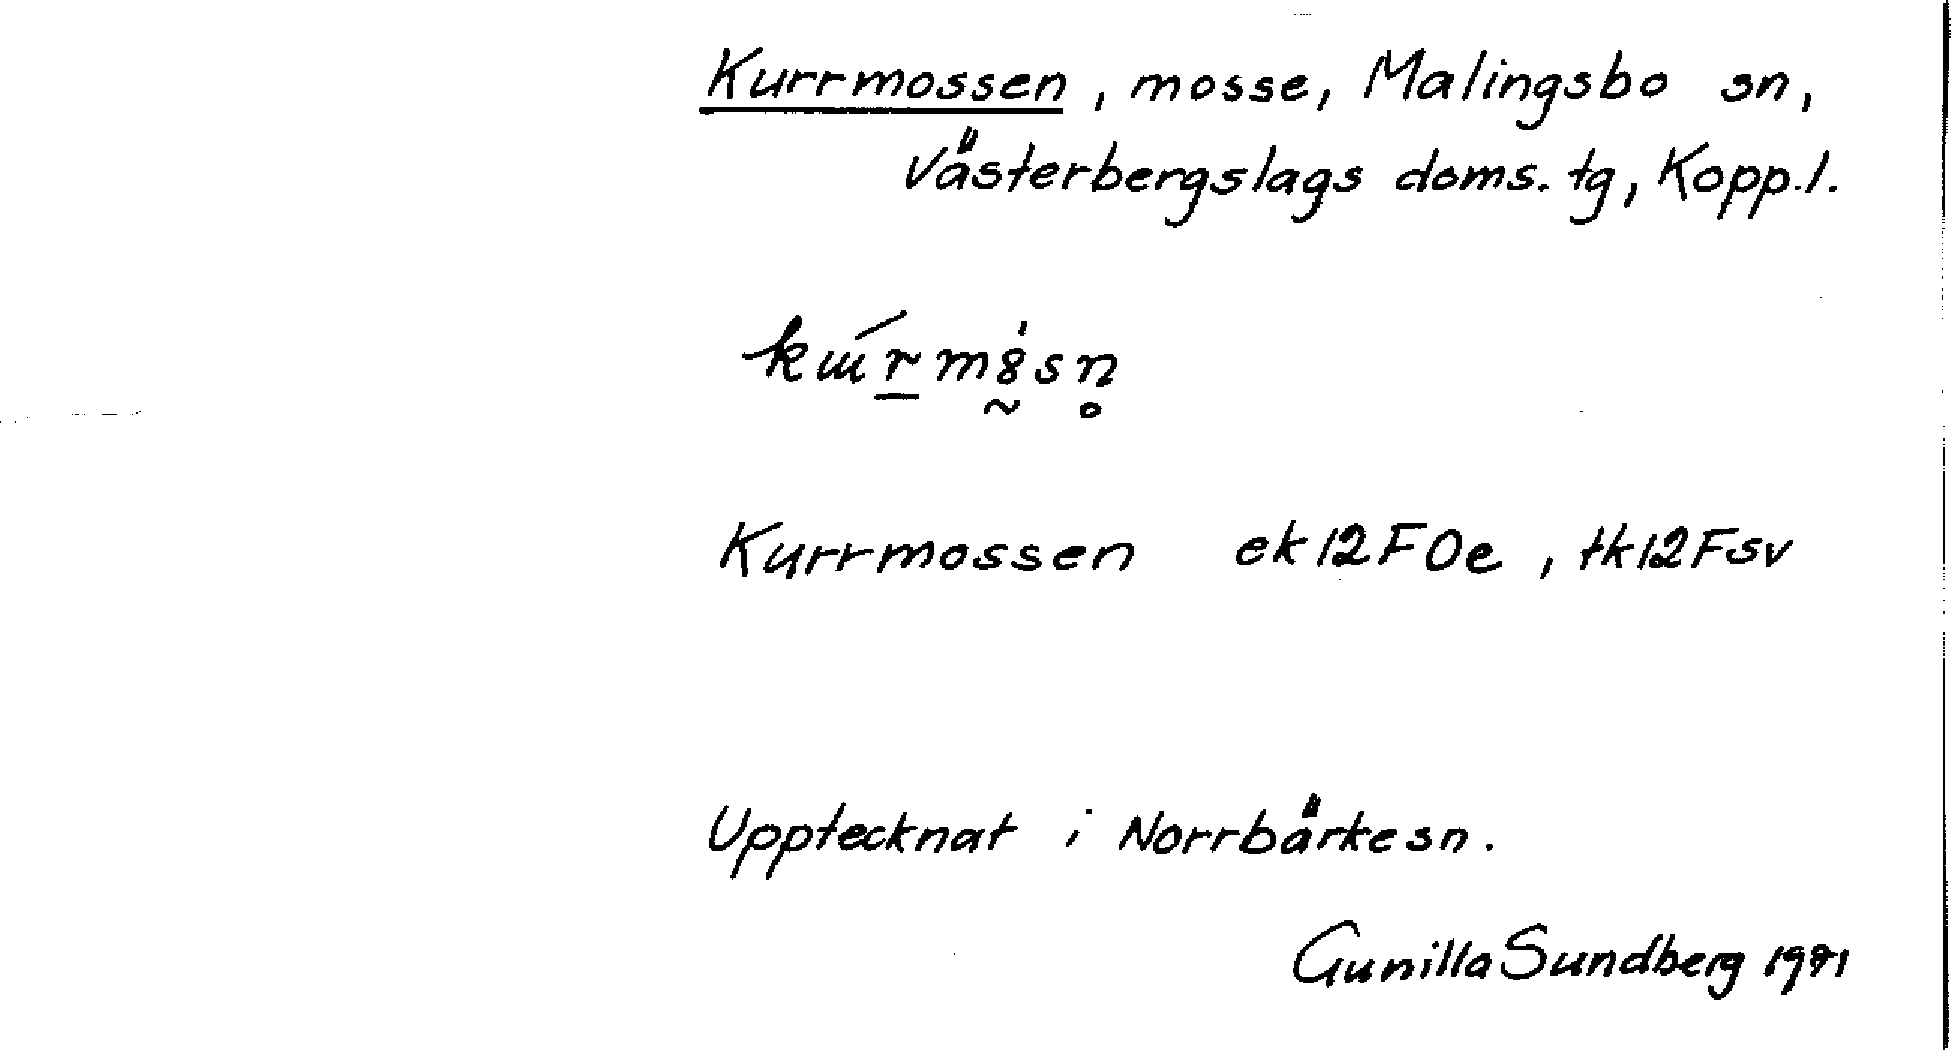 Kurrmossen, mosse, Malingsbo sn,
Västerbergslags doms. tg, Kopp.l.
Kurrmossen ek12F0e, tk12Fsv
Upptecknat i Norrbärke sn.
Gunilla Sundberg 1971